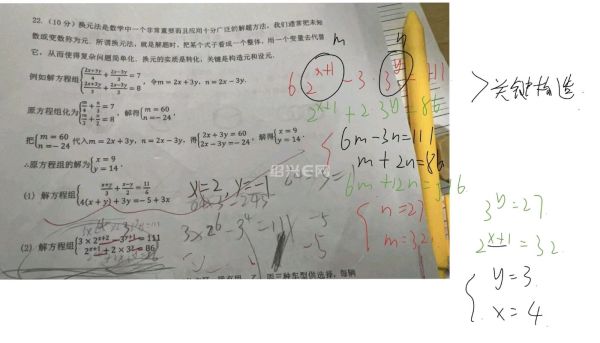 22.（10 分）换元法是数学中一个非常重要而且应用十分广泛的解题方法，我们通常把未知
数或变数称为元．所谓换元法，就是解题时，把某个式子看成一个整体，用一个变量去代替
它，从而使得复杂问题简单化．换元的实质是转化，关键是构造元和设元．
例如解方程组{(2x+3y)/4+(2x-3y)/3=7，(2x+3y)/3+(2x-3y)/2=8，令m=2x+3y，n=2x-3y.
原方程组化为{m/4+n/3=7，m/3+n/2=8，解得{m=60，n=-24，
把{m=60，n=-24代入m=2x+3y，n=2x-3y，得{2x+3y=60，2x-3y=-24，解得{x=9，y=14，
∴原方程组的解为{x=9，y=14.
(1) 解方程组{(x+y)/3+(x-y)/2=11/6，4(x+y)+3y=-5+3x
x=2, y=-1
(2) 解方程组{3×2^(x+2)-3^(y+1)=111，2^(x+1)+2×3^y=86
3×2^6-3^4=111
-5
-5
m
6 2^(x+1) -3· 3^y =111
2^(x+1)+2 3^y=86
6m-3n=111
m+2n=86
n=27
m=32
>关键构造
3^y=27
2^(x+1)=32
y=3
x=4
绍兴E网